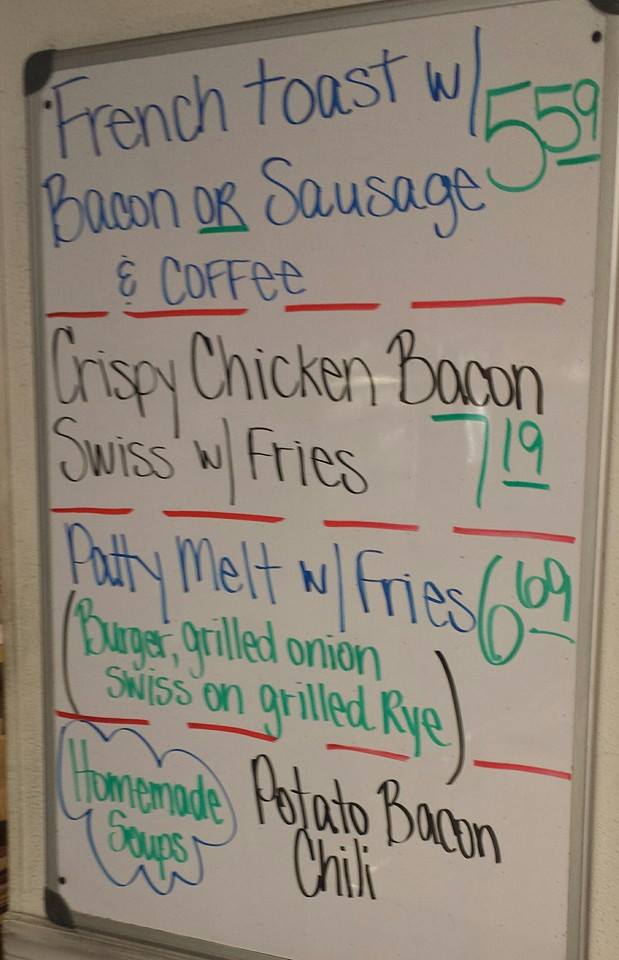 French toast w/ 5.59
Bacon OR Sausage
& COFFee
Crispy Chicken Bacon
Swiss w/ Fries 7 19
Patty Melt w/ Fries 6 69
(Burger, grilled onion
swiss on grilled Rye)
Homemade
Soups
Potato Bacon
Chili